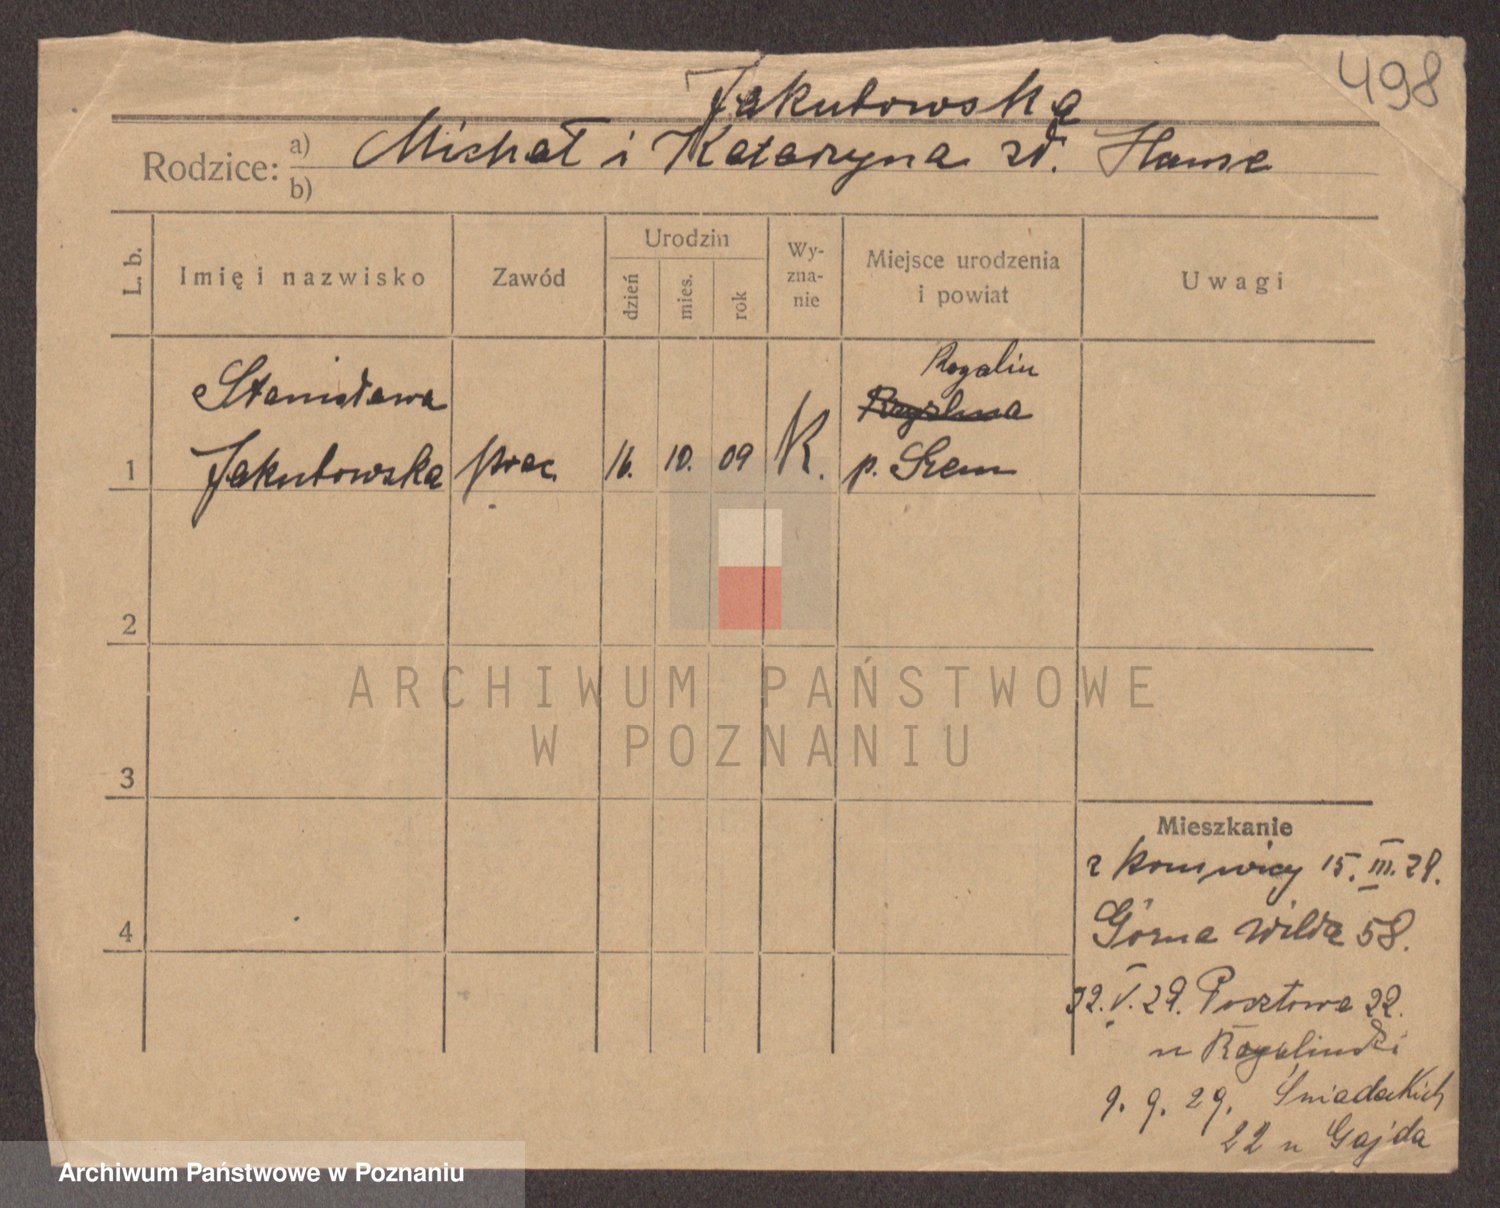 498
Jakubowska
Rodzice: a) Michał i Katarzyna zd.
b)
L. b. Imię i nazwisko Zawód Urodzin dzień mies. rok Wy-zna-nie Miejsce urodzenia i powiat Uwagi
Stanisława Rogalin
1 Jakubowska prac. 16. 10. 09 K. p. Śrem
2
ARCHIWUM PAŃSTWOWE
W POZNANIU
3
Mieszkanie
z 15. III. 28.
4 Górna Wilda 58.
22. V. 29. Pocztowa 22.
u Rogaliński
9. 9. 29. Śniadeckich
22 u Gajda
Archiwum Państwowe w Poznaniu